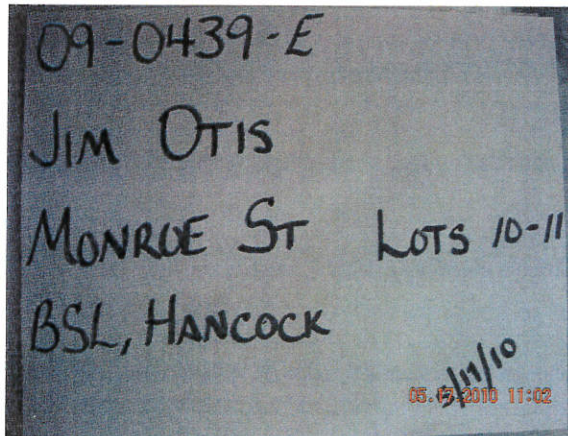 09-0439-E
JIM OTIS
MONROE ST LOTS 10-11
BSL, HANCOCK
5/17/10
2010 11:02